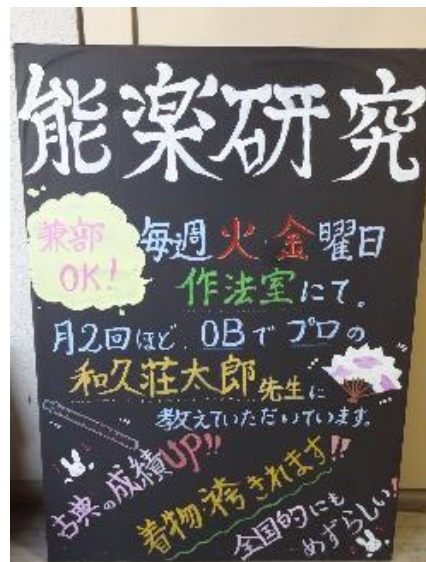 能楽研究
兼部
OK!
毎週火・金曜日
作法室にて。
月2回ほど、OBでプロの
和久荘太郎先生に
教えていただいています。
古典の成績UP!!
着物・袴きれます!!
全国的にも
めずらしい!